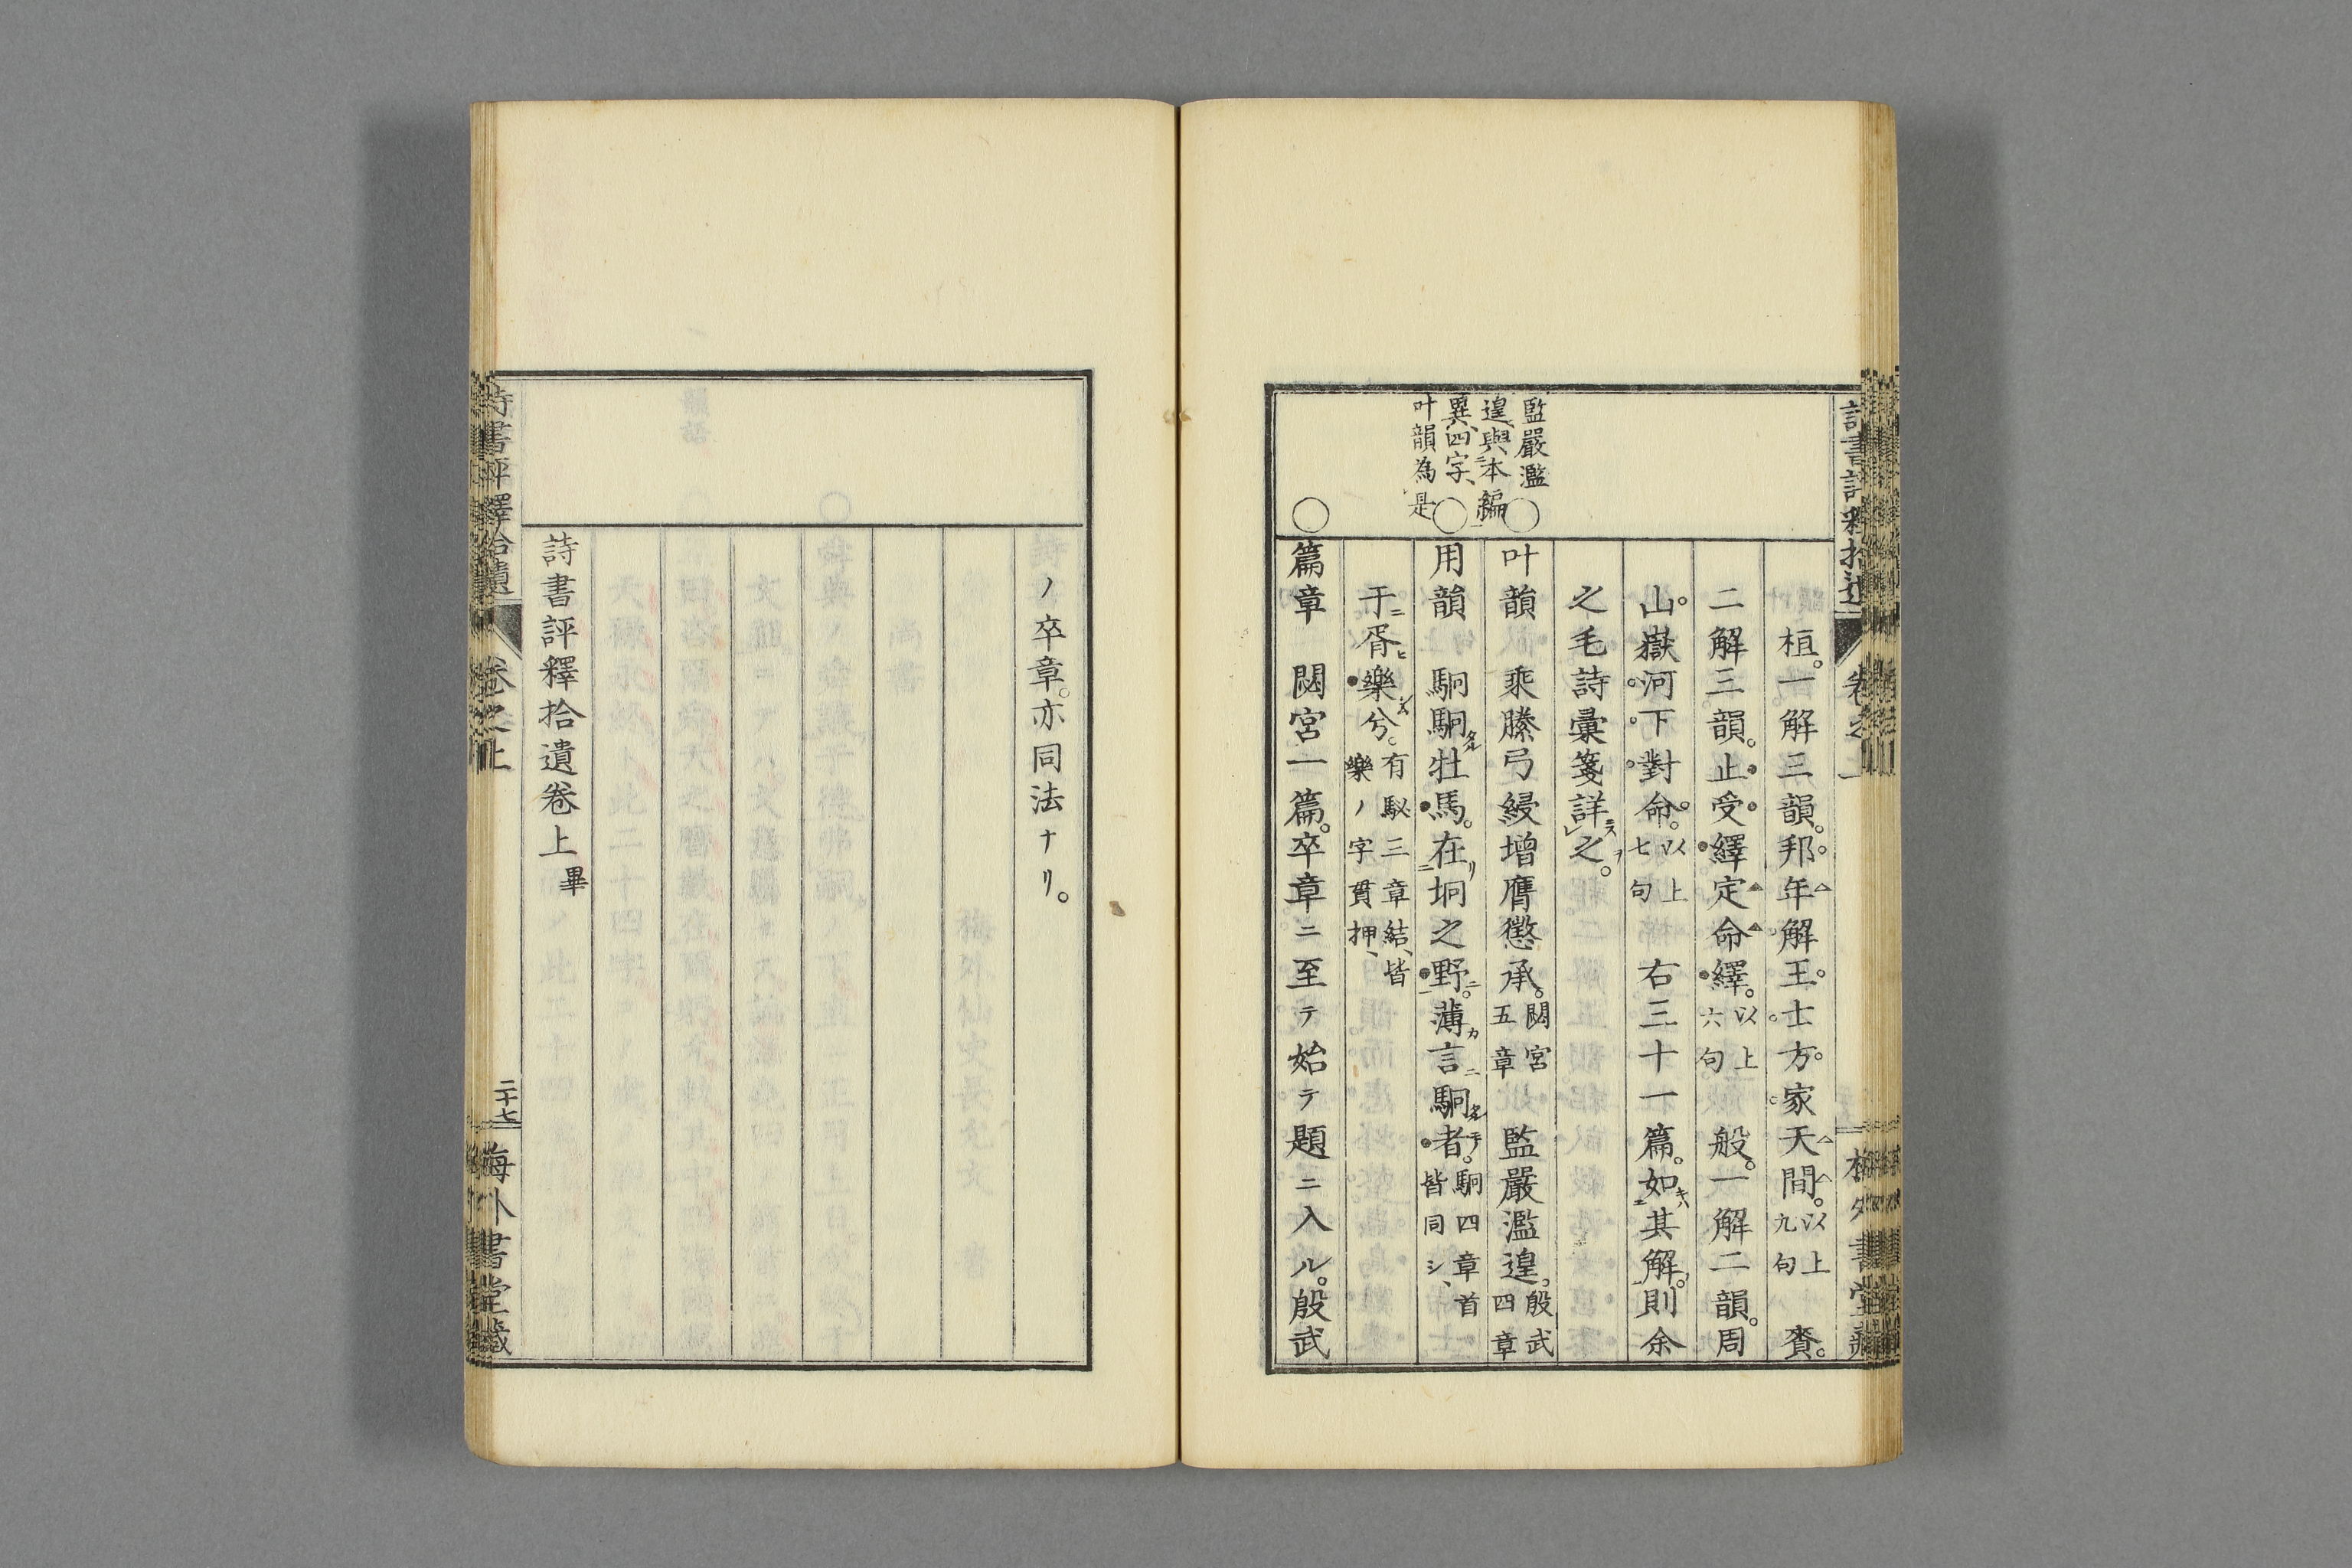 監嚴濫
遑、與本編
異、四字、
叶韻為是
桓。一解三韻。邦年解王士方家天間。以上九句 賚。
二解三韻。止受繹定命繹。以上六句 般。一解二韻。周
山嶽河下對命。以上七句 右三十一篇。如其解。則余
之毛詩彙箋詳之。
○叶韻 乘縢弓綅增膺懲承。閟宮五章 監嚴濫遑。殷武四章
○用韻 駉駉牡馬。在坰之野。薄言駉者。駉四章首皆同シ、
于胥樂兮。有駜三章結、皆樂ノ字貫押、
○篇章 閟宮一篇。卒章ニ至テ始テ題ニ入ル。殷武
ノ卒章。亦同法ナリ。
詩書評釋拾遺卷上畢
詩書評釋拾遺 卷之上 二十七 梅外書堂藏